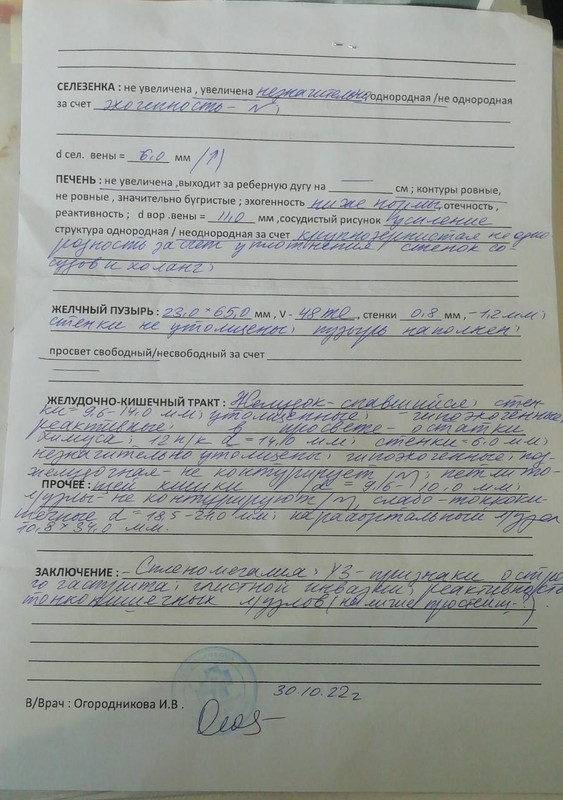 СЕЛЕЗЕНКА : не увеличена , увеличена незначительно, однородная /не однородная
за счет эхогенность - N ;
d сел. вены = 6,0 мм /↑)
ПЕЧЕНЬ : не увеличена ,выходит за реберную дугу на ___ см ; контуры ровные,
не ровные , значительно бугристые ; эхогенность ниже нормы, отечность ,
реактивность ; d вор .вены = 11,0 мм ,сосудистый рисунок усиление
структура однородная / неоднородная за счет крупнозернистая неодно
родность за счет уплотнения стенок со
судов и холанг ;
ЖЕЛЧНЫЙ ПУЗЫРЬ : 23,0 * 65,0 мм , V - 48 , стенки 0,8 мм , - 1,2 мм ;
стенки не утолщены ; пузырь наполнен ;
просвет свободный/несвободный за счет
ЖЕЛУДОЧНО-КИШЕЧНЫЙ ТРАКТ : Желудок - спавшийся ; стен
ки = 9,6 - 14,0 мм ; утолщенные ; гипоэхогенные,
реактивные ; в просвете - остатки
химуса ; 12 п/к d = 14,0 мм ; стенки = 6,0 мм ;
незначительно утолщены ; гипоэхогенные ; под-
желудочная - не контурирует /N ; петли то-
ПРОЧЕЕ : щей кишки d = 9,6 - 10,0 мм ;
л/узлы - не контурируют /N, слабо - тонкоки-
шечные d = 18,5 - 21,0 мм ; парааортальный л/узел
10,8 * 34,0 мм.
ЗАКЛЮЧЕНИЕ : - Спленомегалия ; УЗ - признаки остро
го гастрита ; глистной инвазии ; реактивность
тонкокишечных л/узлов ( простейш. )
30.10.22 г
В/Врач : Огородникова И.В .